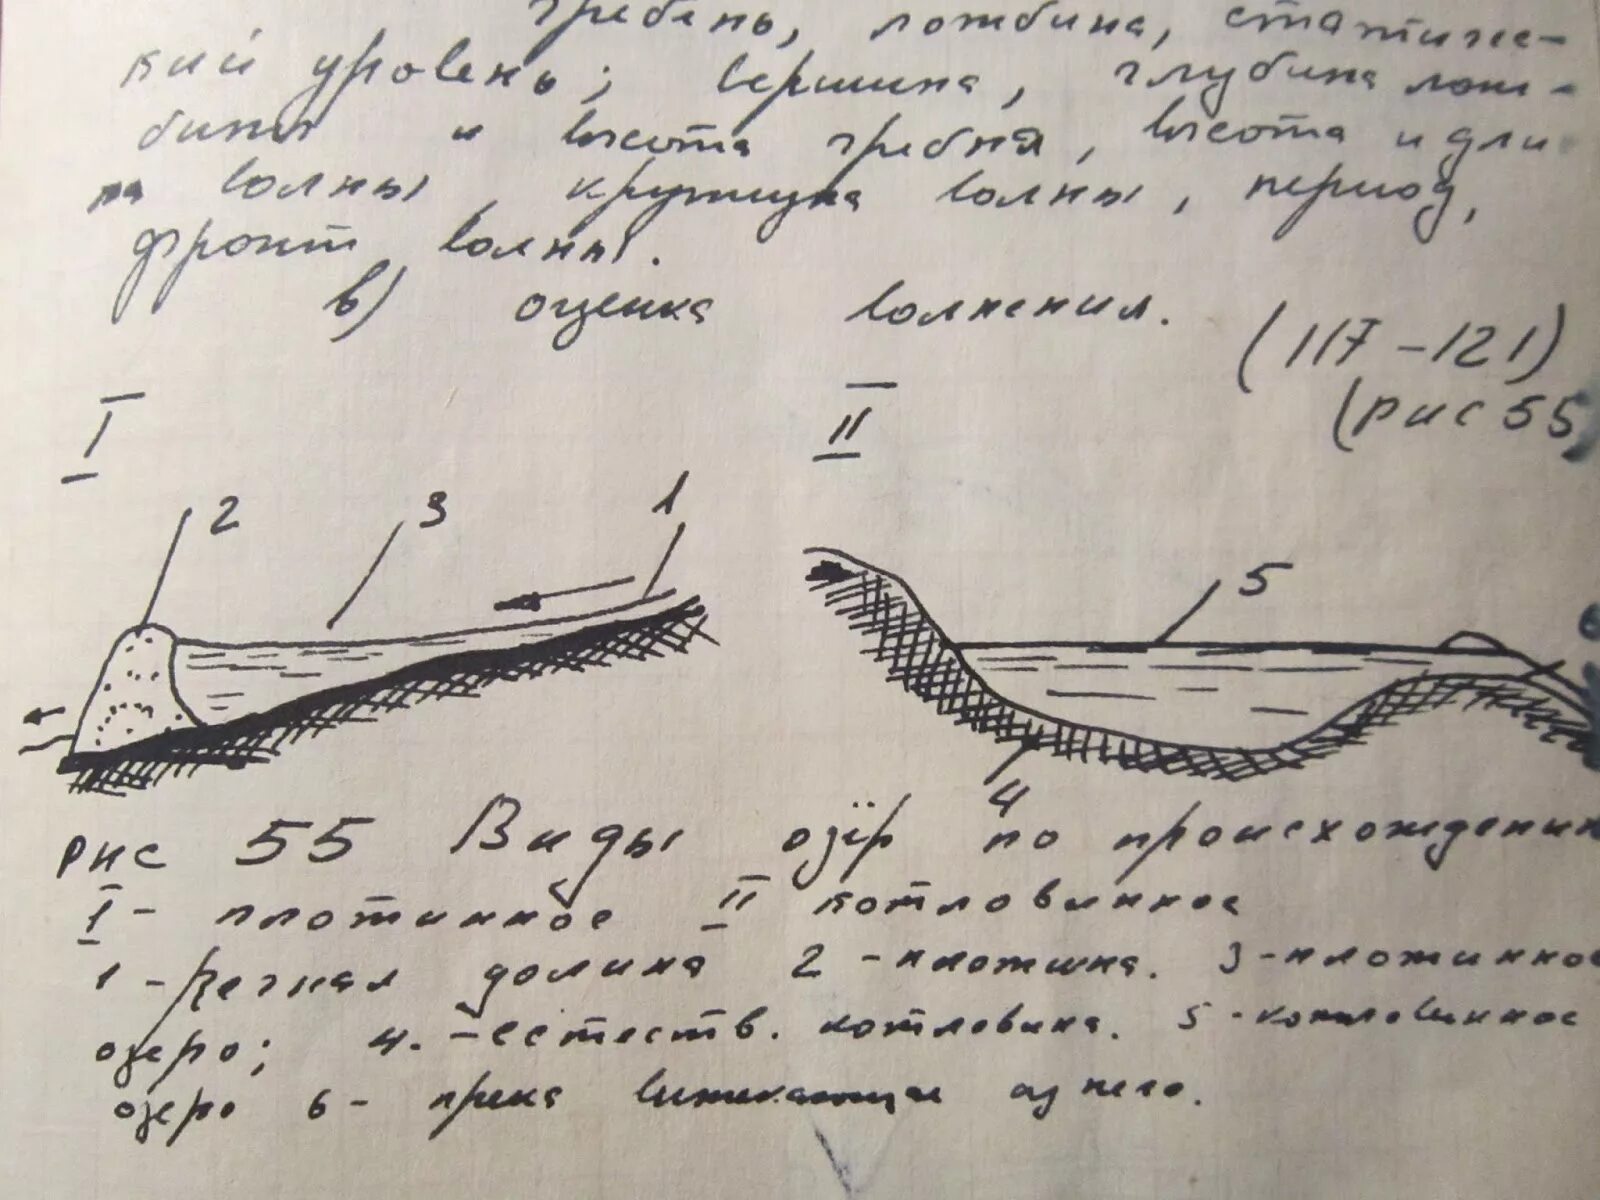 гребень, ложбина, статичес-
кий уровень; вершина, глубина лож-
бины и высота гребня, высота и дли
на волны, крутизна волны, период,
фронт волны.
в) оценка волнения.
(117-121)
(рис 55)
I
II
2
3
1
5
6
4
рис 55 Виды озёр по происхождению
I - плотинное II котловинное
1 - речная долина 2 - плотина. 3 - плотинное
озеро; 4. - естеств. котловина. 5 - котловинное
озеро 6 - река вытекающая из него.